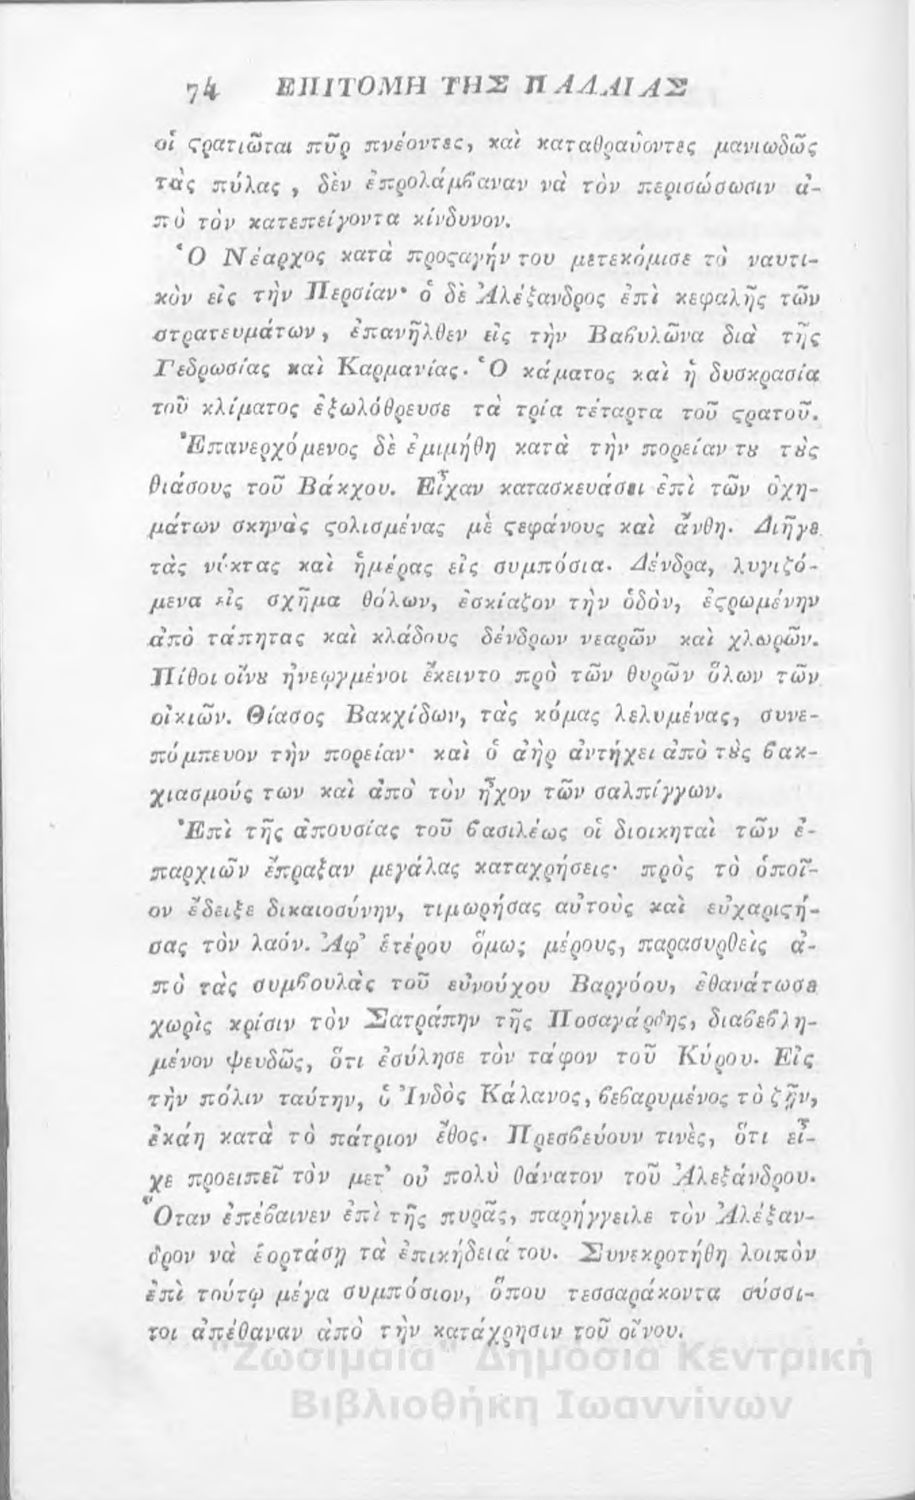 74 ΕΠΙΤΟΜΗ ΤΗΣ ΠΑΛΑΙΑΣ
οἱ ϛρατιῶται πῦρ πνέοντες, καὶ καταθραύοντες μανιωδῶς
τὰς πύλας, δὲν ἐπρολάμϐαναν νὰ τὸν περισώσωσιν ἀ-
πὸ τὸν κατεπείγοντα κίνδυνον.
Ὁ Νέαρχος κατὰ προϛαγήν του μετεκόμισε τὸ ναυτι-
κὸν εἰς τὴν Περσίαν· ὁ δὲ Ἀλέξανδρος ἐπὶ κεφαλῆς τῶν
στρατευμάτων, ἐπανῆλθεν εἰς τὴν Βαϐυλῶνα διὰ τῆς
Γεδρωσίας καὶ Καρμανίας. Ὁ κάματος καὶ ἡ δυσκρασία
τοῦ κλίματος ἐξωλόθρευσε τὰ τρία τέταρτα τοῦ ϛρατοῦ.
Ἐπανερχόμενος δὲ ἐμιμήθη κατὰ τὴν πορείαν τȣ τȣ̀ς
θιάσους τοῦ Βάκχου. Εἶχαν κατασκευάσει ἐπὶ τῶν ὀχη-
μάτων σκηνὰς ϛολισμένας μὲ ϛεφάνους καὶ ἄνθη. Διῆγε
τὰς νύκτας καὶ ἡμέρας εἰς συμπόσια. Δένδρα, λυγιζό-
μενα εἰς σχῆμα θόλων, ἐσκίαζον τὴν ὁδὸν, ἐϛρωμένην
ἀπὸ τάπητας καὶ κλάδους δένδρων νεαρῶν καὶ χλωρῶν.
Πίθοι οἴνȣ ἠνεῳγμένοι ἔκειντο πρὸ τῶν θυρῶν ὅλων τῶν
οἰκιῶν. Θίασος Βακχίδων, τὰς κόμας λελυμένας, συνε-
πόμπευον τὴν πορείαν· καὶ ὁ ἀὴρ ἀντήχει ἀπὸ τȣ̀ς ϐακ-
χιασμούς των καὶ ἀπὸ τὸν ἦχον τῶν σαλπίγγων.
Ἐπὶ τῆς ἀπουσίας τοῦ ϐασιλέως οἱ διοικηταὶ τῶν ἐ-
παρχιῶν ἔπραξαν μεγάλας καταχρήσεις· πρὸς τὸ ὁποῖ-
ον ἔδειξε δικαιοσύνην, τιμωρήσας αὐτοὺς καὶ εὐχαριϛή-
σας τὸν λαόν. Ἀφ' ἑτέρου ὅμως μέρους, παρασυρθεὶς ἀ-
πὸ τὰς συμϐουλὰς τοῦ εὐνούχου Βαργόου, ἐθανάτωσε
χωρὶς κρίσιν τὸν Σατράπην τῆς Ποσαγάρδης, διαϐεϐλη-
μένον ψευδῶς, ὅτι ἐσύλησε τὸν τάφον τοῦ Κύρου. Εἰς
τὴν πόλιν ταύτην, ὁ Ἰνδὸς Κάλανος, ϐεϐαρυμένος τὸ ζῇν,
ἐκάη κατὰ τὸ πάτριον ἔθος. Πρεσϐεύουν τινὲς, ὅτι εἶ-
χε προειπεῖ τὸν μετ' οὐ πολὺ θάνατον τοῦ Ἀλεξάνδρου.
Ὅταν ἐπέϐαινεν ἐπὶ τῆς πυρᾶς, παρήγγειλε τὸν Ἀλέξαν-
δρον νὰ ἑορτάσῃ τὰ ἐπικήδειά του. Συνεκροτήθη λοιπὸν
ἐπὶ τούτῳ μέγα συμπόσιον, ὅπου τεσσαράκοντα σύσσι-
τοι ἀπέθαναν ἀπὸ τὴν κατάχρησιν τοῦ οἴνου.
"Ζωσιμαία" Δημόσια Κεντρική
Βιβλιοθήκη Ιωαννίνων